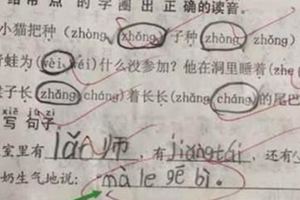 给带点的字圈出正确的读音。
小猫把种 (zhòng zhǒng) 子种 (zhòng zhǒng)
青蛙为 (wèi wéi) 什么没参加？他在洞里睡着 (zhe
子长 (zhǎng cháng) 着长长 (zhǎng cháng) 的尾巴
xiě jù zi
写 句子
室里有 lǎo师，有 jiǎngtái，还有
奶生气地说：mà le gē bì。